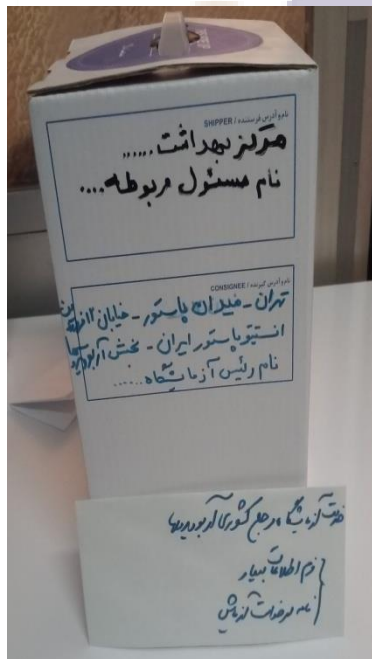 نام و آدرس فرستنده / SHIPPER
مرکز بهداشت......
نام مسئول مربوطه....
نام و آدرس گیرنده / CONSIGNEE
تهران - میدان پاستور - خیابان ۱۲ فروردین
انستیتو پاستور ایران - بخش آربوویروسها
نام رئیس آزمایشگاه......
آزمایشگاه مرجع کشوری آربوویروسها
فرم اطلاعات بیمار
نامه درخواست آزمایش